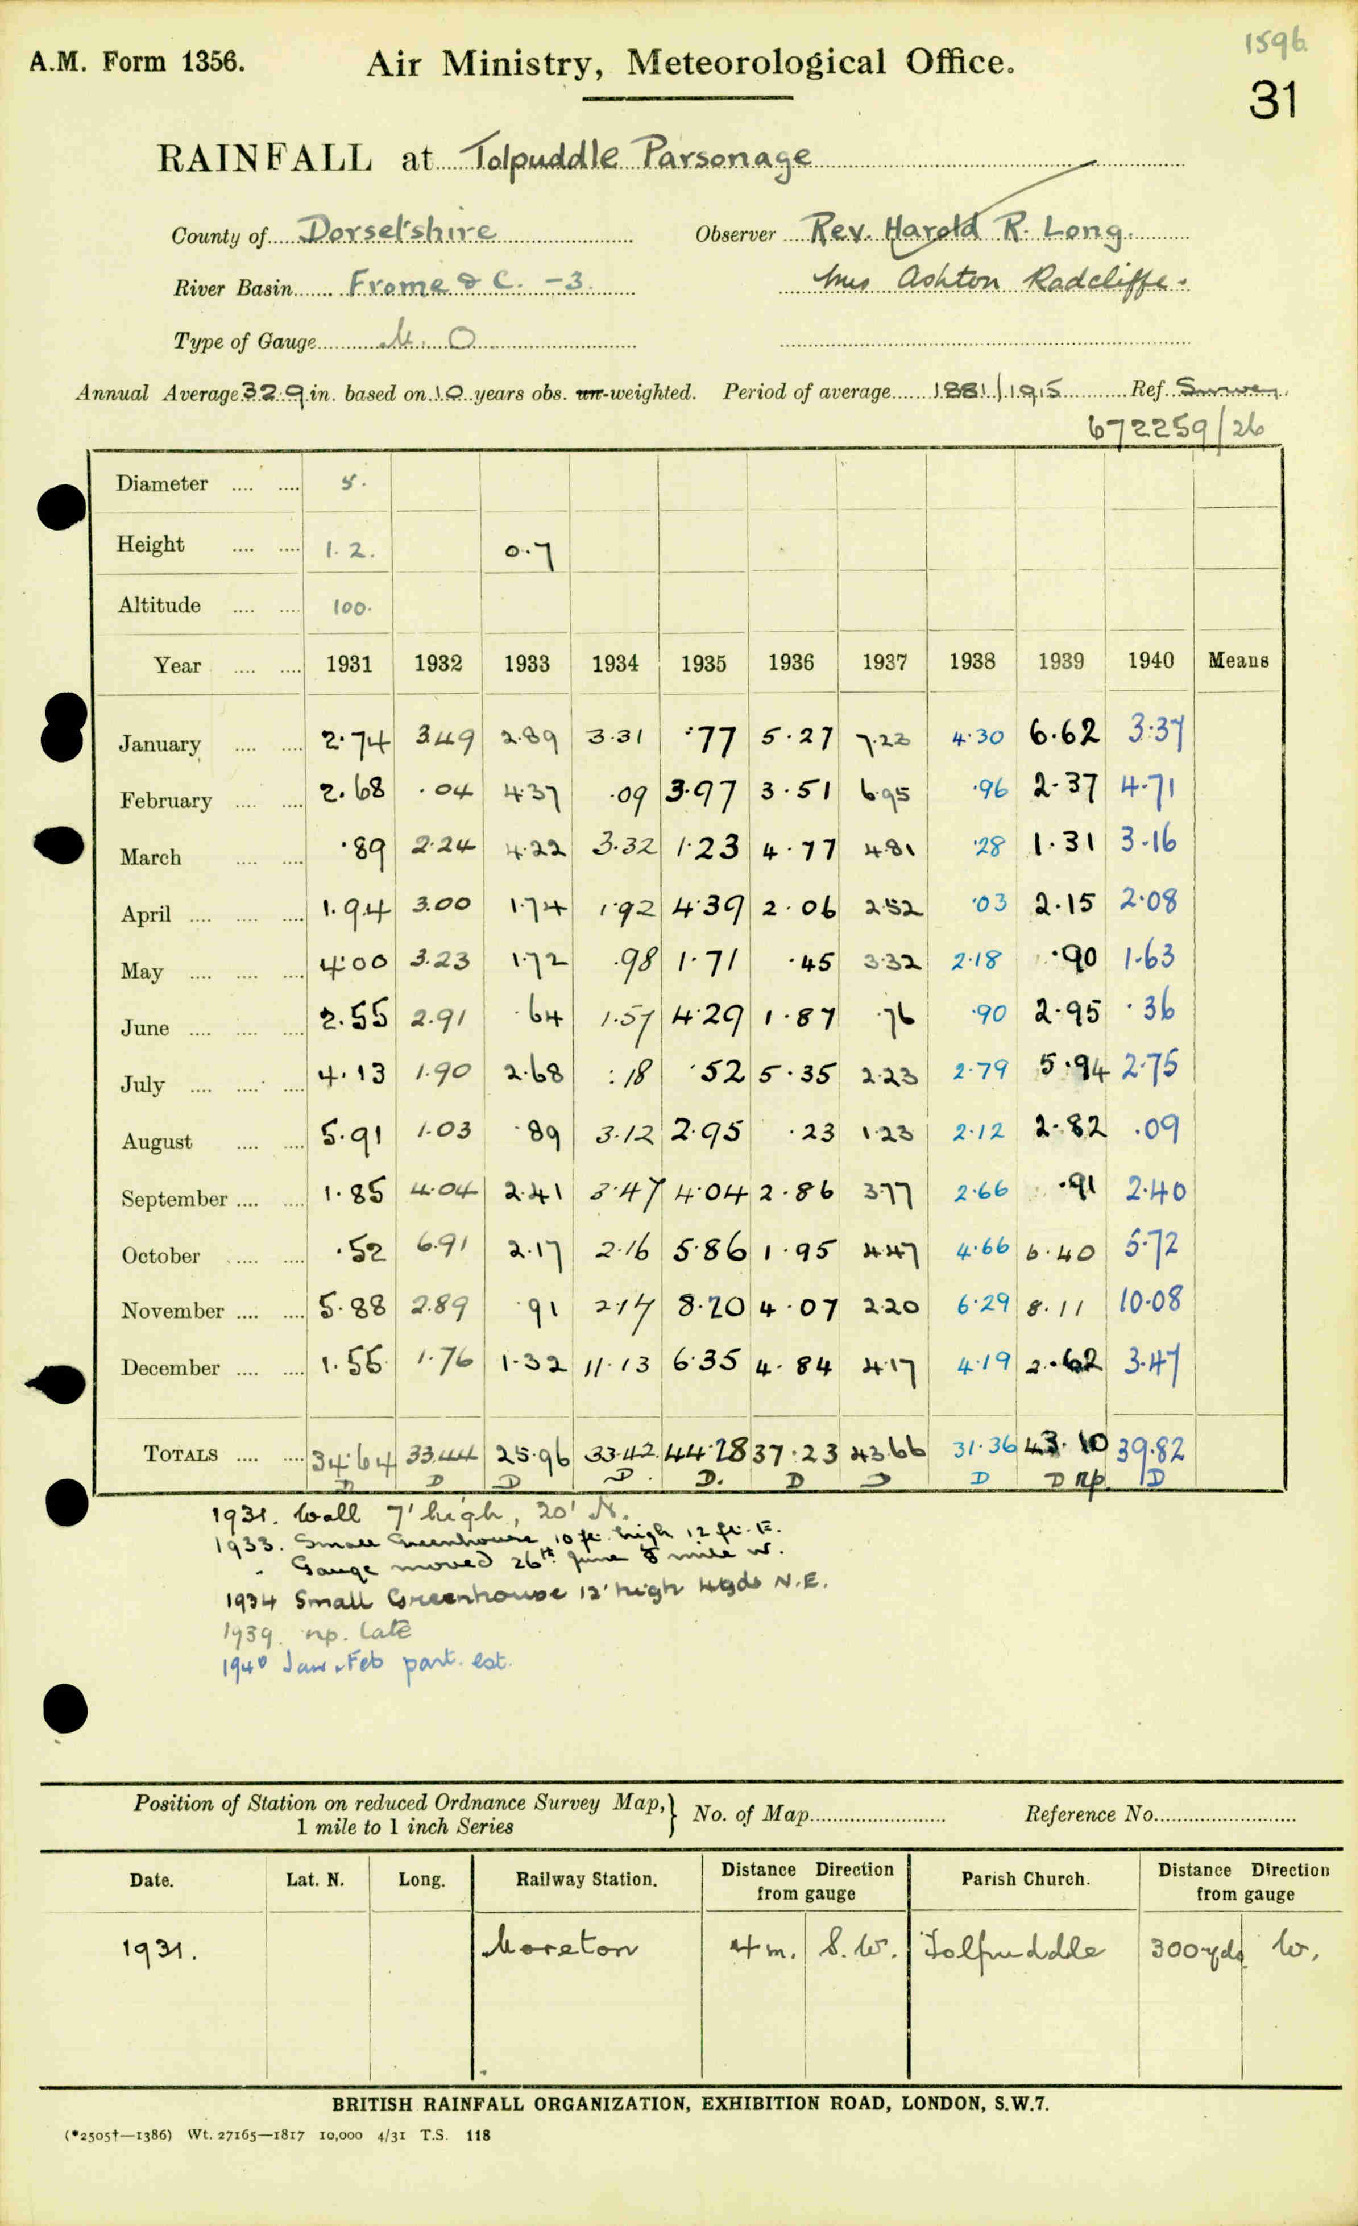 1596
A.M. Form 1356.
Air Ministry, Meteorological Office.
31
RAINFALL at Tolpuddle Parsonage
County of Dorsetshire Observer Rev. Harold R. Long.
River Basin Frome & C. -3 Mrs Ashton Radcliffe.
Type of Gauge M. O
Annual Average 32.9 in. based on 10 years obs. un-weighted. Period of average 1881/1915 Ref. Survey
672259/26
Diameter .... .... 5.
Height .... .... 1.2. 0.7
Altitude .... .... 100.
Year .... .... 1931 1932 1933 1934 1935 1936 1937 1938 1939 1940 Means
January .... .... 2.74 3.49 2.89 3.31 .77 5.27 7.23 4.30 6.62 3.37
February .... .... 2.68 .04 4.37 .09 3.97 3.51 6.95 .96 2.37 4.71
March .... .... .89 2.24 4.22 3.32 1.23 4.77 4.81 .28 1.31 3.16
April .... .... .... 1.94 3.00 1.74 1.92 4.39 2.06 2.52 .03 2.15 2.08
May .... .... .... 4.00 3.23 1.72 .98 1.71 .45 3.32 2.18 .90 1.63
June .... .... .... 2.55 2.91 .64 1.57 4.29 1.87 .76 .90 2.95 .36
July .... .... .... 4.13 1.90 2.68 .18 .52 5.35 2.23 2.79 5.94 2.75
August .... .... 5.91 1.03 .89 3.12 2.95 .23 1.23 2.12 2.82 .09
September .... .... 1.85 4.04 2.41 3.47 4.04 2.86 3.77 2.66 .91 2.40
October .... .... .52 6.91 2.17 2.16 5.86 1.95 4.47 4.66 6.40 5.72
November .... .... 5.88 2.89 .91 2.17 8.20 4.07 2.20 6.29 8.11 10.08
December .... .... 1.55 1.76 1.32 11.13 6.35 4.84 4.17 4.19 2.62 3.47
TOTALS .... .... 34.64 33.44 25.96 33.42 44.28 37.23 43.66 31.36 43.10 39.82
D D D D. D. D D D D np. D
1931. Wall 7' high, 20' N.
1933. Small Greenhouse 10 ft. high 12 ft. E.
" Gauge moved 26th June mile W.
1934 Small Greenhouse 12' high 4yds N.E.
1939. np. late
1940 Jan & Feb part. est.
Position of Station on reduced Ordnance Survey Map,} No. of Map Reference No.
1 mile to 1 inch Series
Date. Lat. N. Long. Railway Station. Distance Direction from gauge Parish Church. Distance Direction from gauge
1931. Moreton 4 m. S.W. Tolpuddle 300 yds W.
BRITISH RAINFALL ORGANIZATION, EXHIBITION ROAD, LONDON, S.W.7.
(*2505†—1386) Wt. 27165—1817 10,000 4/31 T.S. 118